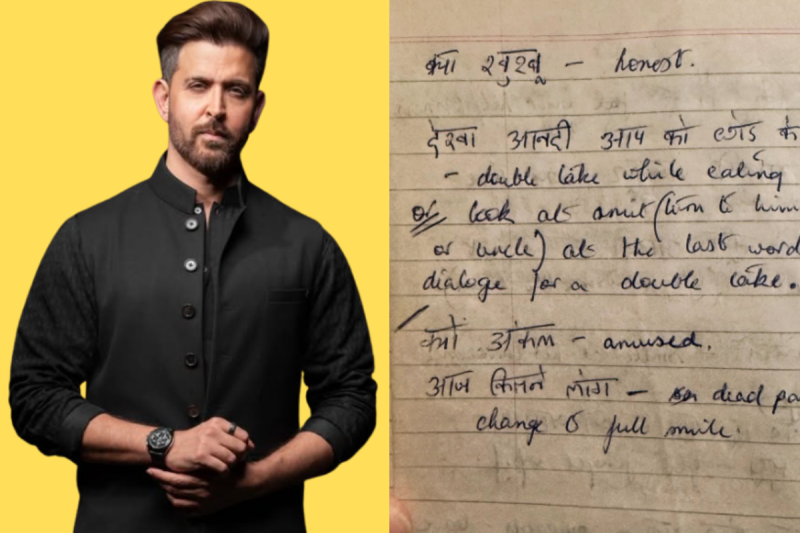 क्या खुश्बू - honest.
देखा आनदी आप को छोड के
- double take while eating
or look at amit (turn to him
or uncle) at the last word
dialoge for a double take.
क्यों अंकल - amused.
आज कितने लोग - dead pa
change to full smile.